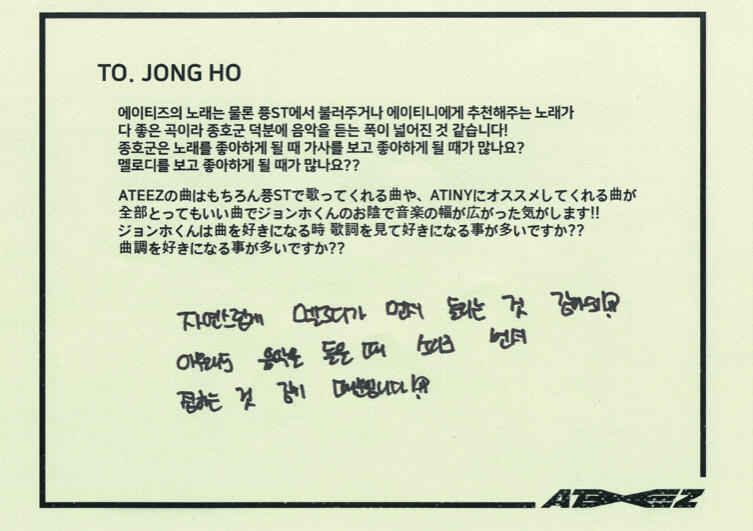 TO. JONG HO
에이티즈의 노래는 물론 쫑ST에서 불러주거나 에이티니에게 추천해주는 노래가
다 좋은 곡이라 종호군 덕분에 음악을 듣는 폭이 넓어진 것 같습니다!
종호군은 노래를 좋아하게 될 때 가사를 보고 좋아하게 될 때가 많나요?
멜로디를 보고 좋아하게 될때가 많나요??
ATEEZの曲はもちろん쫑STで歌ってくれる曲や、ATINYにオススメしてくれる曲が
全部とってもいい曲でジョンホくんのお陰で音楽の幅が広がった気がします!!
ジョンホくんは曲を好きになる時 歌詞を見て好きになる事が多いですか??
曲調を好きになる事が多いですか??
자연스럽게 멜로디가 먼저 들리는 것
아무래도 음악을 들을 때 소리로 먼저
접하는 것 같기 때문입니다!?
ATEEZ